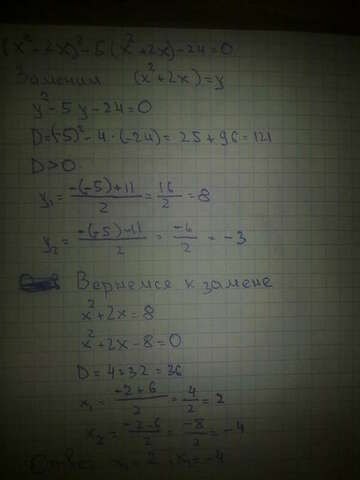 (x² - 2x)² - 5(x² + 2x) - 24 = 0
Заменим (x² + 2x) = y
y² - 5y - 24 = 0
D = (-5)² - 4 · (-24) = 25 + 96 = 121
D > 0.
y₁ = \frac{-(-5)+11}{2} = \frac{16}{2} = 8
y₂ = \frac{-(-5)-11}{2} = \frac{-6}{2} = -3
Вернемся к замене
x² + 2x = 8
x² + 2x - 8 = 0
D = 4 + 32 = 36
x₁ = \frac{-2+6}{2} = \frac{4}{2} = 2
x₂ = \frac{-2-6}{2} = \frac{-8}{2} = -4
Ответ x₁ = 2, x₂ = -4